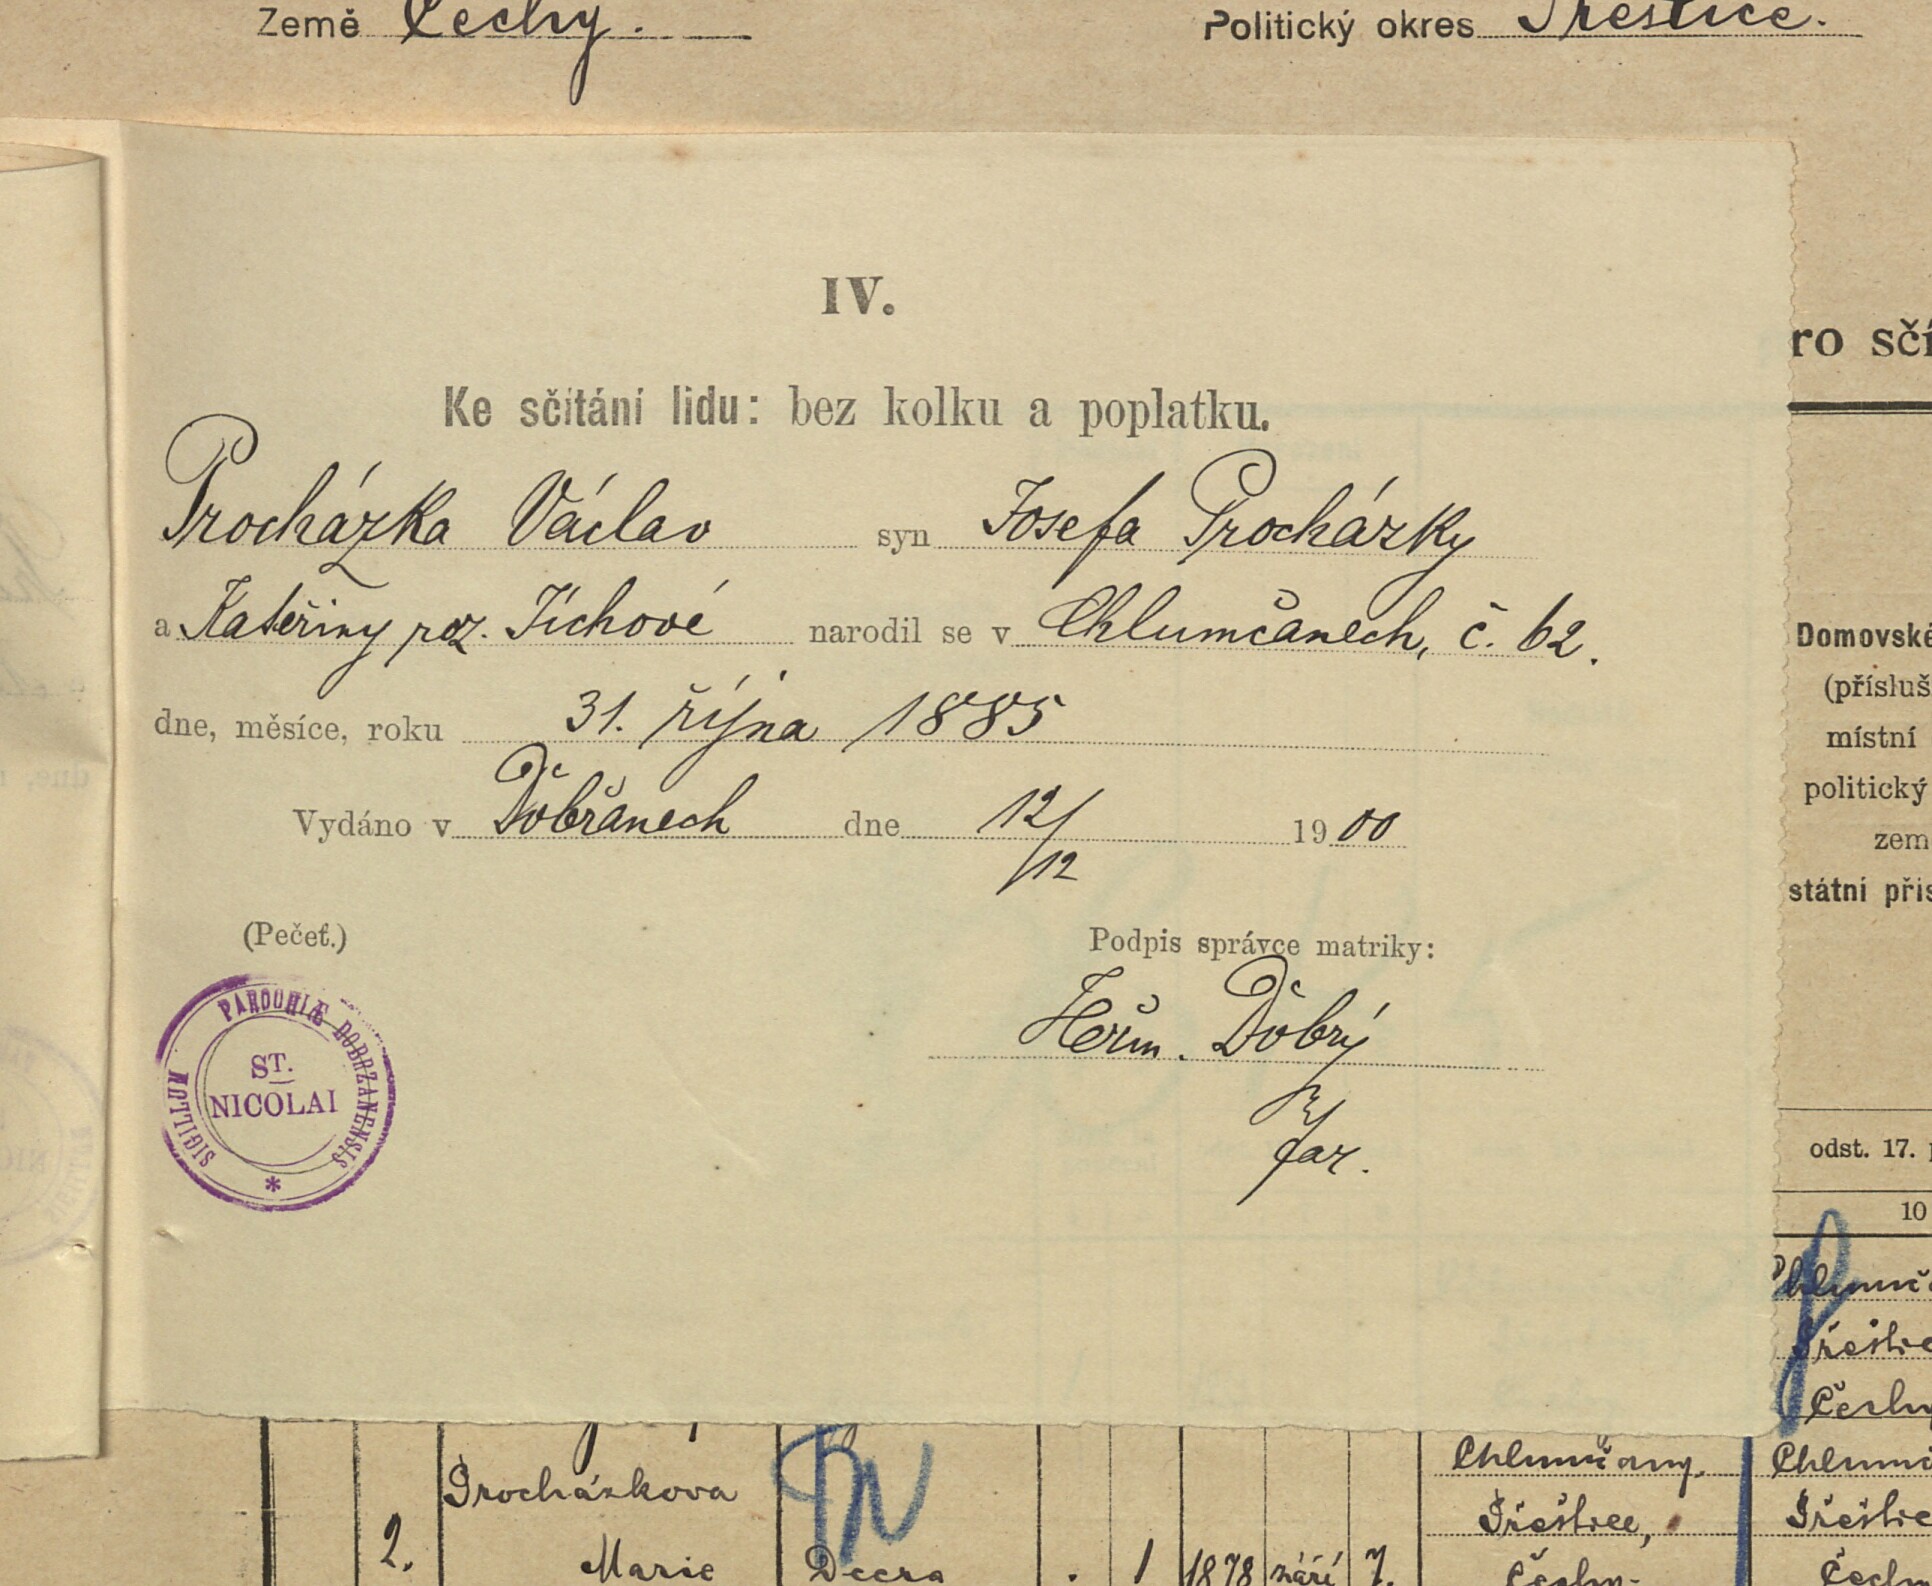 Země Čechy.
Politický okres Přeštice.
ro sčí
IV.
Ke sčítání lidu: bez kolku a poplatku.
Procházka Václav syn Josefa Procházky
a Kateřiny roz. Jíchové narodil se v Chlumčanech, č. 62.
dne, měsíce, roku 31. října 1885
Vydáno v Dobřanech dne 12/12 1900
(Pečeť.)
Podpis správce matriky:
Heřm. Dobrý
far.
SIGILLUM PAROCHIÆ DOBRZANENSIS *
ST.
NICOLAI
Domovské
(přísluš
místní
politický
zem
státní přís
odst. 17. p
10
Chlumča
Přeštice
Čechy
Procházkova
2. Marie Dcera . 1 1878 září 7.
Chlumčany.
Přeštice,
Čechy.
Chlumč
Přeštice
Čechy